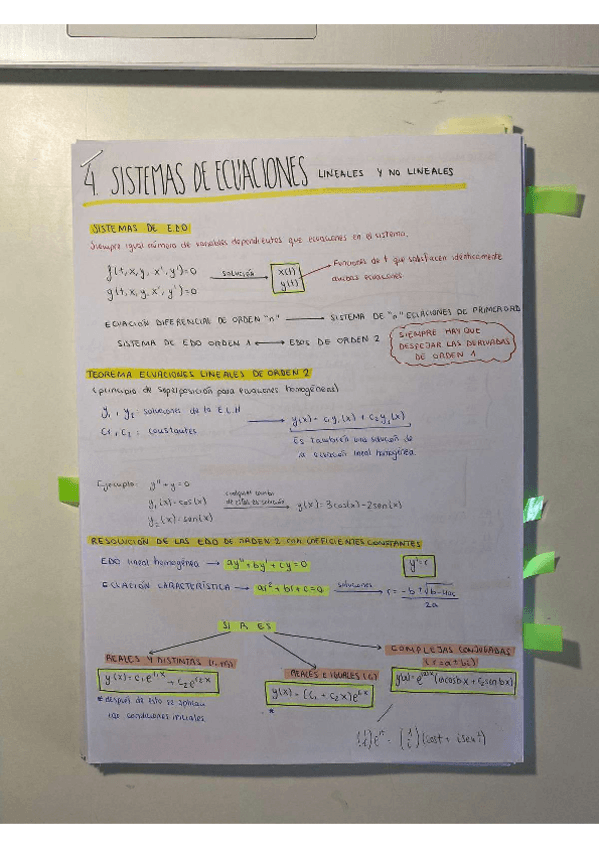 4. SISTEMAS DE ECUACIONES LINEALES Y NO LINEALES
SISTEMAS DE EDO
Siempre igual número de variables dependientes que ecuaciones en el sistema.
f(t,x,y,x',y')=0
g(t,x,y,x',y')=0
solución
x(t)
y(t)
Funciones de t que satisfacen idénticamente
ambas ecuaciones
ECUACIÓN DIFERENCIAL DE ORDEN "n" → SISTEMA DE "n" ECUACIONES DE PRIMER ORD
SISTEMA DE EDO ORDEN 1 ↔ EDOS DE ORDEN 2
SIEMPRE HAY QUE
DESPEJAR LAS DERIVADAS
DE ORDEN 1
TEOREMA ECUACIONES LINEALES DE ORDEN 2
(principio de superposición para ecuaciones homogéneas)
y₁, y₂: soluciones de la E.L.H
C₁, C₂: constantes
y(x) = c₁y₁(x) + c₂y₂(x)
Es también una solución de
la ecuación lineal homogénea.
Ejemplo: y''+y=0
y₁(x)=cos(x)
y₂(x)=sen(x)
cualquier comb.
de ellas es solución
y(x)= 3cos(x)-2sen(x)
RESOLUCIÓN DE LAS EDO DE ORDEN 2 CON COEFICIENTES CONSTANTES
EDO lineal homogénea → ay''+by'+cy=0
y'=r
ECUACIÓN CARACTERÍSTICA → ar²+br+c=0
soluciones
r = -b±√b²-4ac
2a
SI R ES
REALES Y DISTINTAS
y(x)=c₁e^r₁x + c₂e^r₂x
* después de esto se aplican
las condiciones iniciales
REALES E IGUALES (r)
y(x) = (c₁ + c₂x)e^rx
*
COMPLEJAS CONJUGADAS
(r=a±bi)